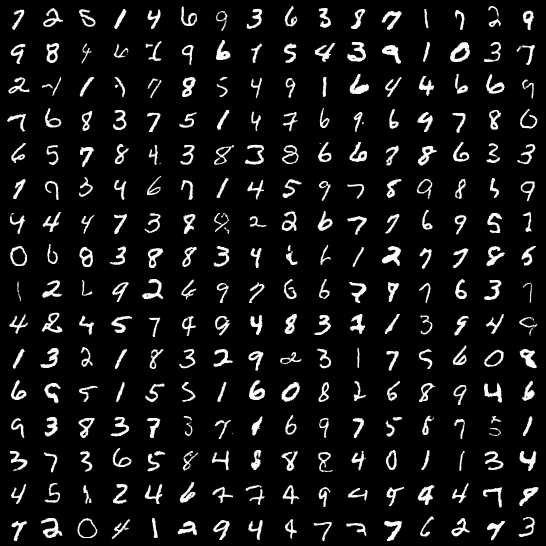 7 2 5 1 4 6 9 3 6 3 8 7 1 7 2 9
9 8 4 6 1 9 6 1 5 4 3 9 1 0 3 7
2 1 1 7 8 5 4 9 1 6 4 4 6 6 9
7 6 8 3 7 5 1 4 7 6 9 6 9 7 8 0
6 5 7 8 4 3 8 3 8 6 6 7 8 6 3 3
1 9 3 4 6 7 1 4 5 9 7 8 9 8 5 9
4 4 4 7 3 8 8 2 2 6 7 7 6 9 5 1
0 6 8 3 8 8 3 4 6 1 2 7 7 8 5
1 2 6 9 2 6 9 7 6 6 7 9 7 6 3 7
4 2 4 5 7 9 9 4 8 3 1 1 3 9 4 9
1 3 2 1 8 3 2 9 2 3 1 7 5 6 0 8
6 5 5 1 5 5 1 6 0 8 2 6 8 9 4 6
9 3 8 3 7 3 7 1 6 9 7 5 8 7 5 1
3 7 3 6 5 8 4 8 8 8 4 0 1 1 3 4
4 5 1 2 4 6 7 7 4 9 4 9 4 4 7 8
7 2 0 4 1 2 9 4 4 7 7 7 6 2 7 3